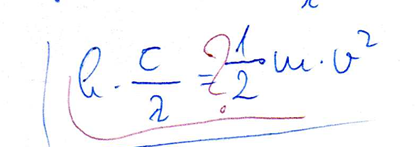 h · c/λ = ? 1/2 m · v²